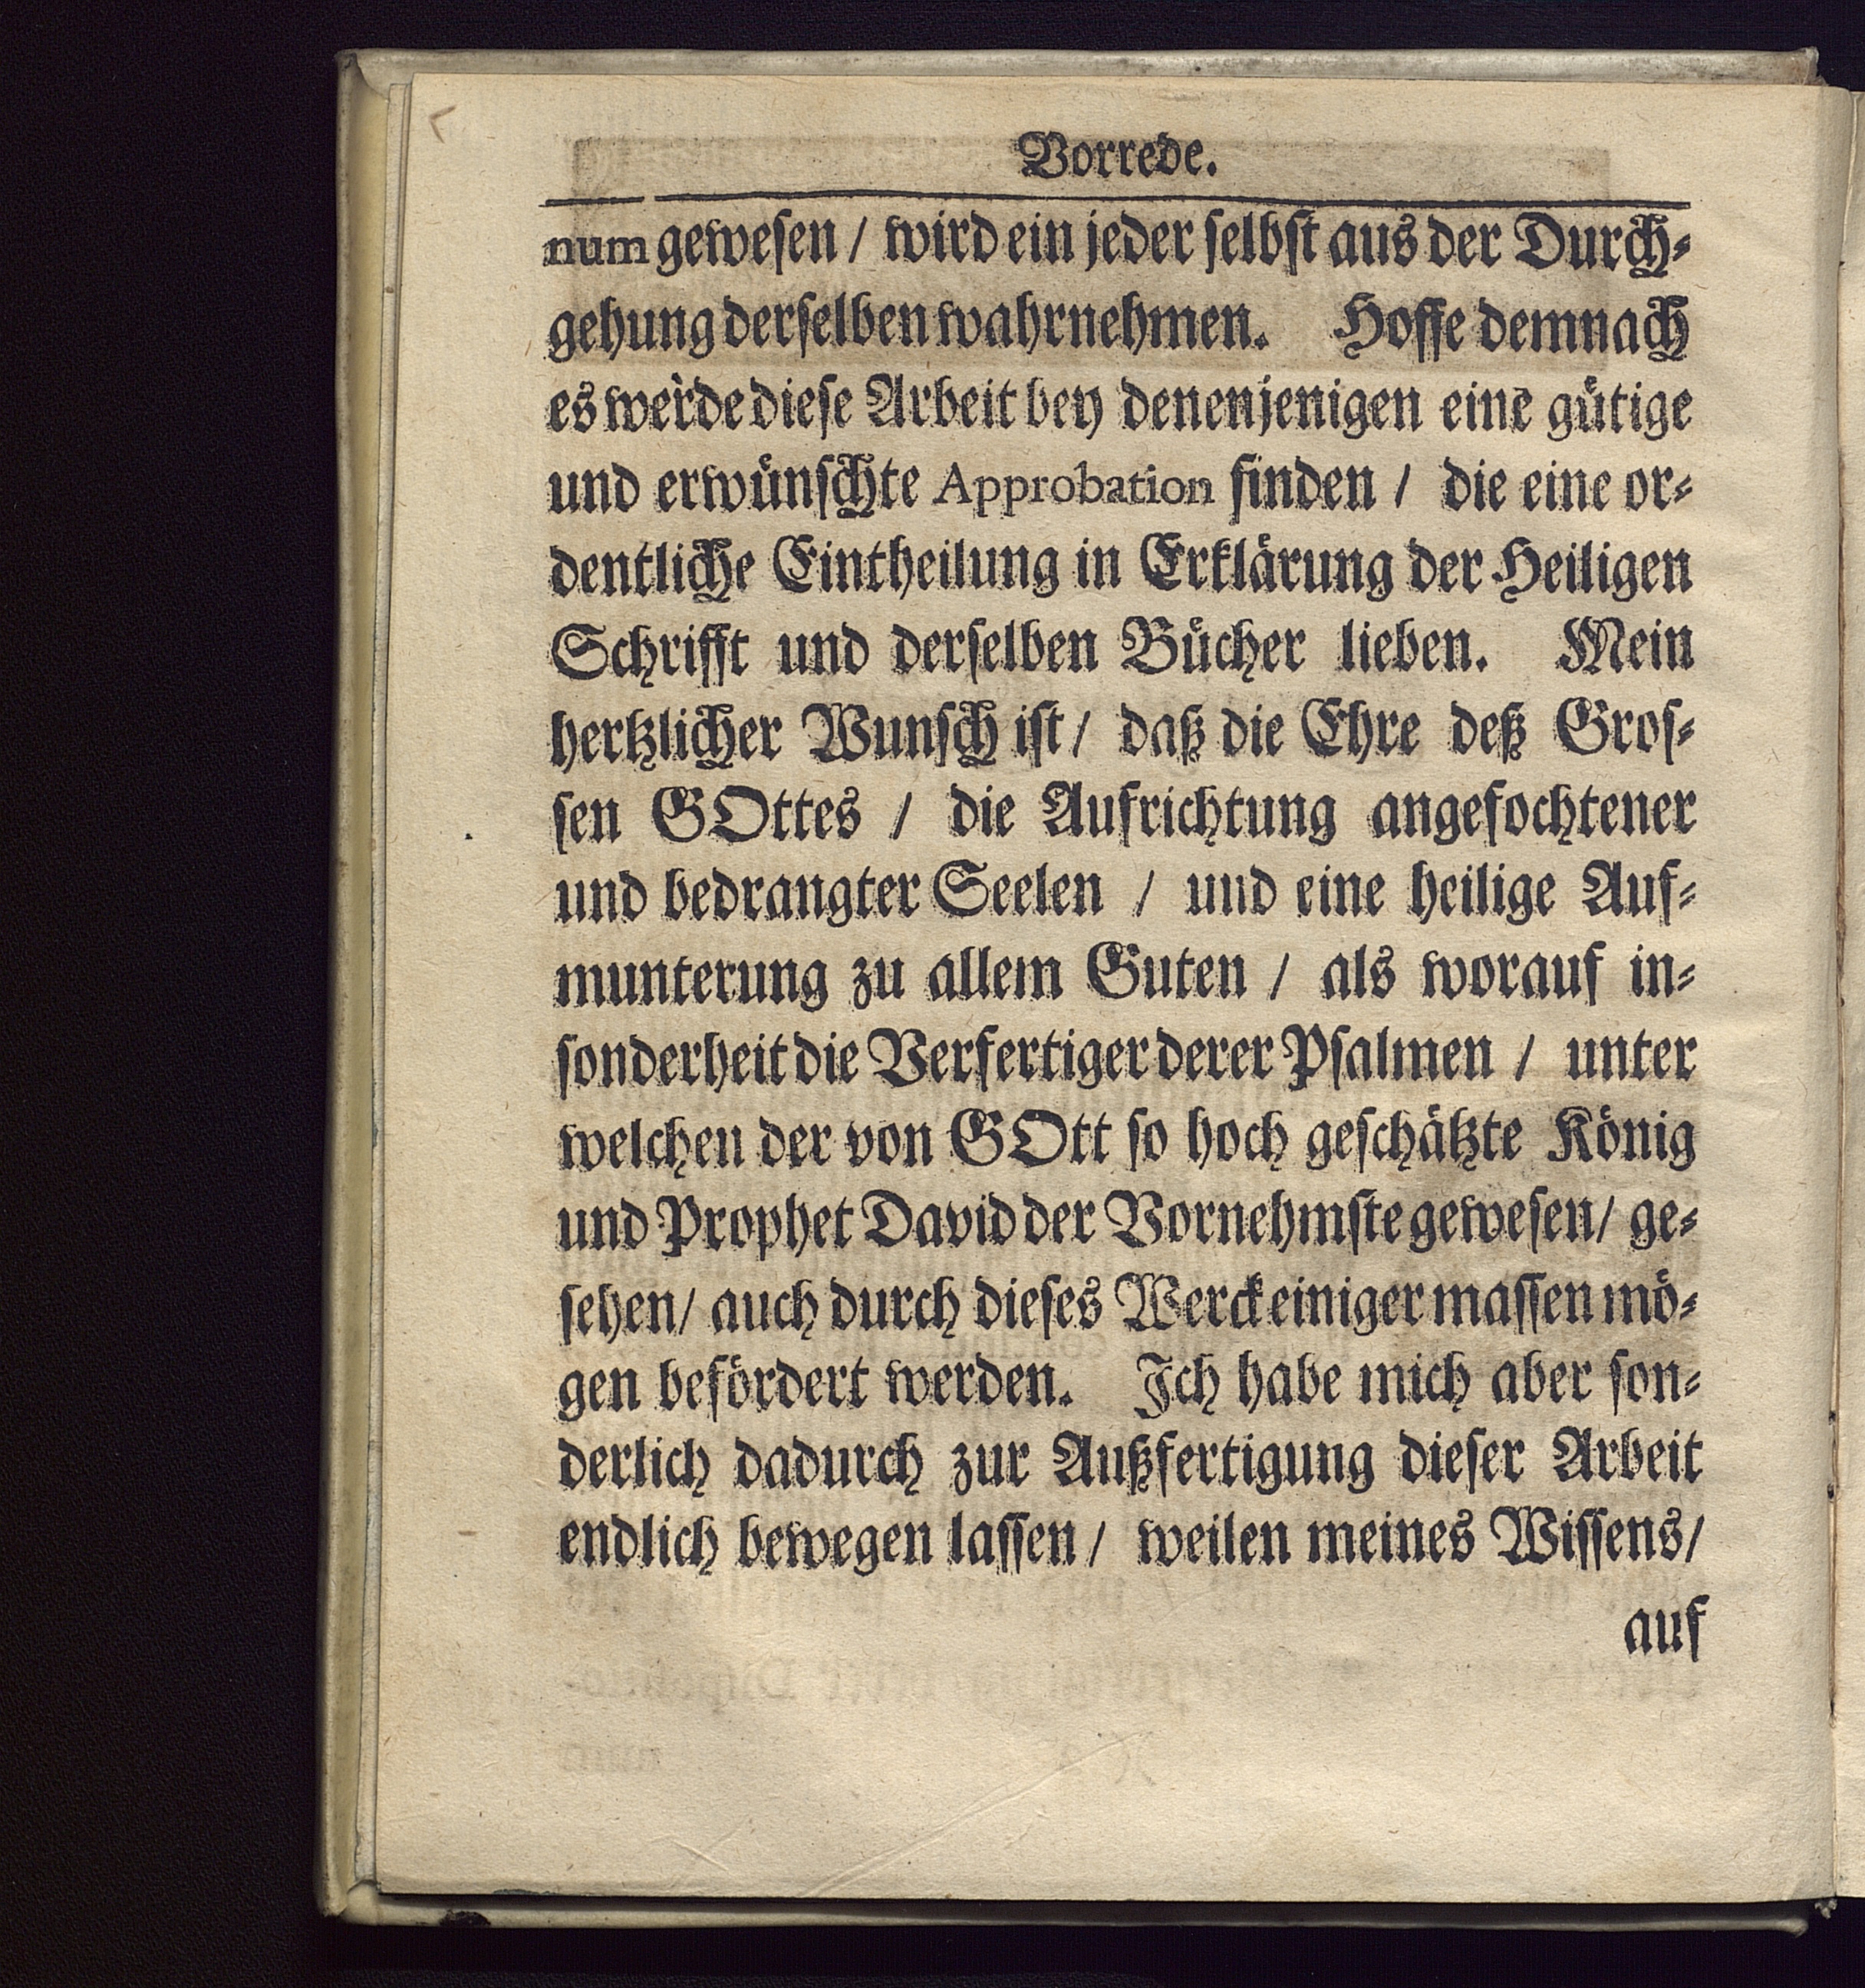 Vorrede.
num gewesen / wird ein jeder selbst aus der Durch-
gehung derselben wahrnehmen. Hoffe demnach
es werde diese Arbeit bey denenjenigen eine gütige
und erwünschte Approbation finden / die eine or-
dentliche Eintheilung in Erklärung der Heiligen
Schrifft und derselben Bücher lieben. Mein
hertzlicher Wunsch ist / daß die Ehre deß Gros-
sen GOttes / die Aufrichtung angefochtener
und bedrangter Seelen / und eine heilige Auf-
munterung zu allem Guten / als worauf in-
sonderheit die Verfertiger derer Psalmen / unter
welchen der von GOtt so hoch geschätzte König
und Prophet David der Vornehmste gewesen / ge-
sehen / auch durch dieses Werck einiger massen mö-
gen befördert werden. Ich habe mich aber son-
derlich dadurch zur Außfertigung dieser Arbeit
endlich bewegen lassen / weilen meines Wissens /
auf